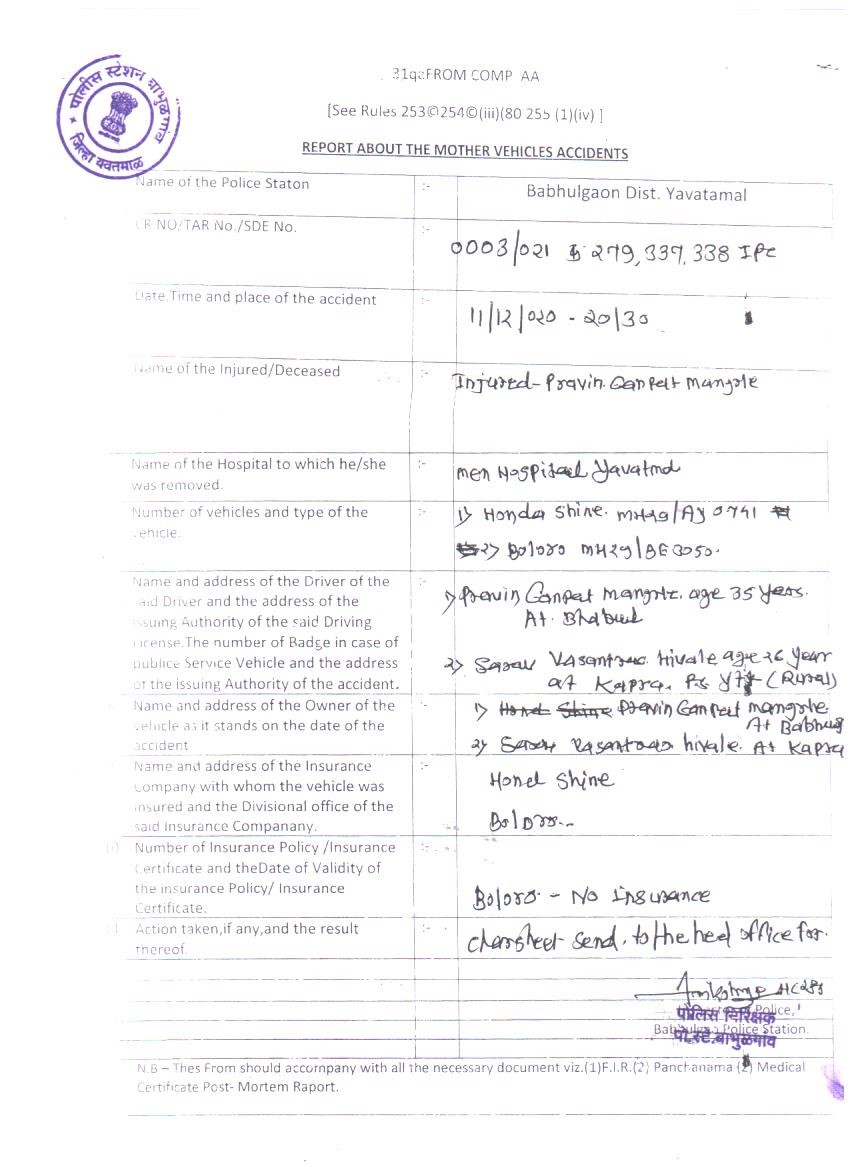 पोलीस स्टेशन बाभुळगांव
जिल्हा यवतमाळ
31qaFROM COMP AA
[See Rules 253©254©(iii)(80 255 (1)(iv) ]
REPORT ABOUT THE MOTHER VEHICLES ACCIDENTS
Name of the Police Staton :- Babhulgaon Dist. Yavatamal
CR NO/TAR No./SDE No. :- 0003/021 279, 337, 338 IPC
Date.Time and place of the accident :- 11/12/020 - 20/30
Name of the Injured/Deceased :- Injured- Pravin. Ganpat Mangrte
Name of the Hospital to which he/she :- Hospital
was removed.
Number of vehicles and type of the :- 1) Honda Shine. MH29/AJ 0741
vehicle. 2) Boloro MH29/BE 3050.
Name and address of the Driver of the :- 1) Pravin Ganpat age 35 years.
said Driver and the address of the At.
issuing Authority of the said Driving
License.The number of Badge in case of
publice Service Vehicle and the address 2) Vasantrao Hivale age 26 year
of the issuing Authority of the accident. at Kapra. Ps (Rural)
Name and address of the Owner of the 1) Hond Shine Pravin Ganpat
vehicle as it stands on the date of the At
accident 2) Vasantrao hivale. At Kapra
Name and address of the Insurance :- Hond Shine
company with whom the vehicle was
insured and the Divisional office of the Boloro..
said Insurance Companany.
10 Number of Insurance Policy /Insurance :-
Certificate and theDate of Validity of
the insurance Policy/ Insurance Boloro - No Insurance
Certificate.
11 Action taken,if any,and the result :- send. to the office for.
thereof.
Police,
पोलिस निरिक्षक
Babhulgaon Police Station.
पो.स्टे.बाभुळगांव
N.B – Thes From should accornpany with all the necessary document viz.(1)F.I.R.(2) Panchanama (2) Medical
Certificate Post- Mortem Raport.